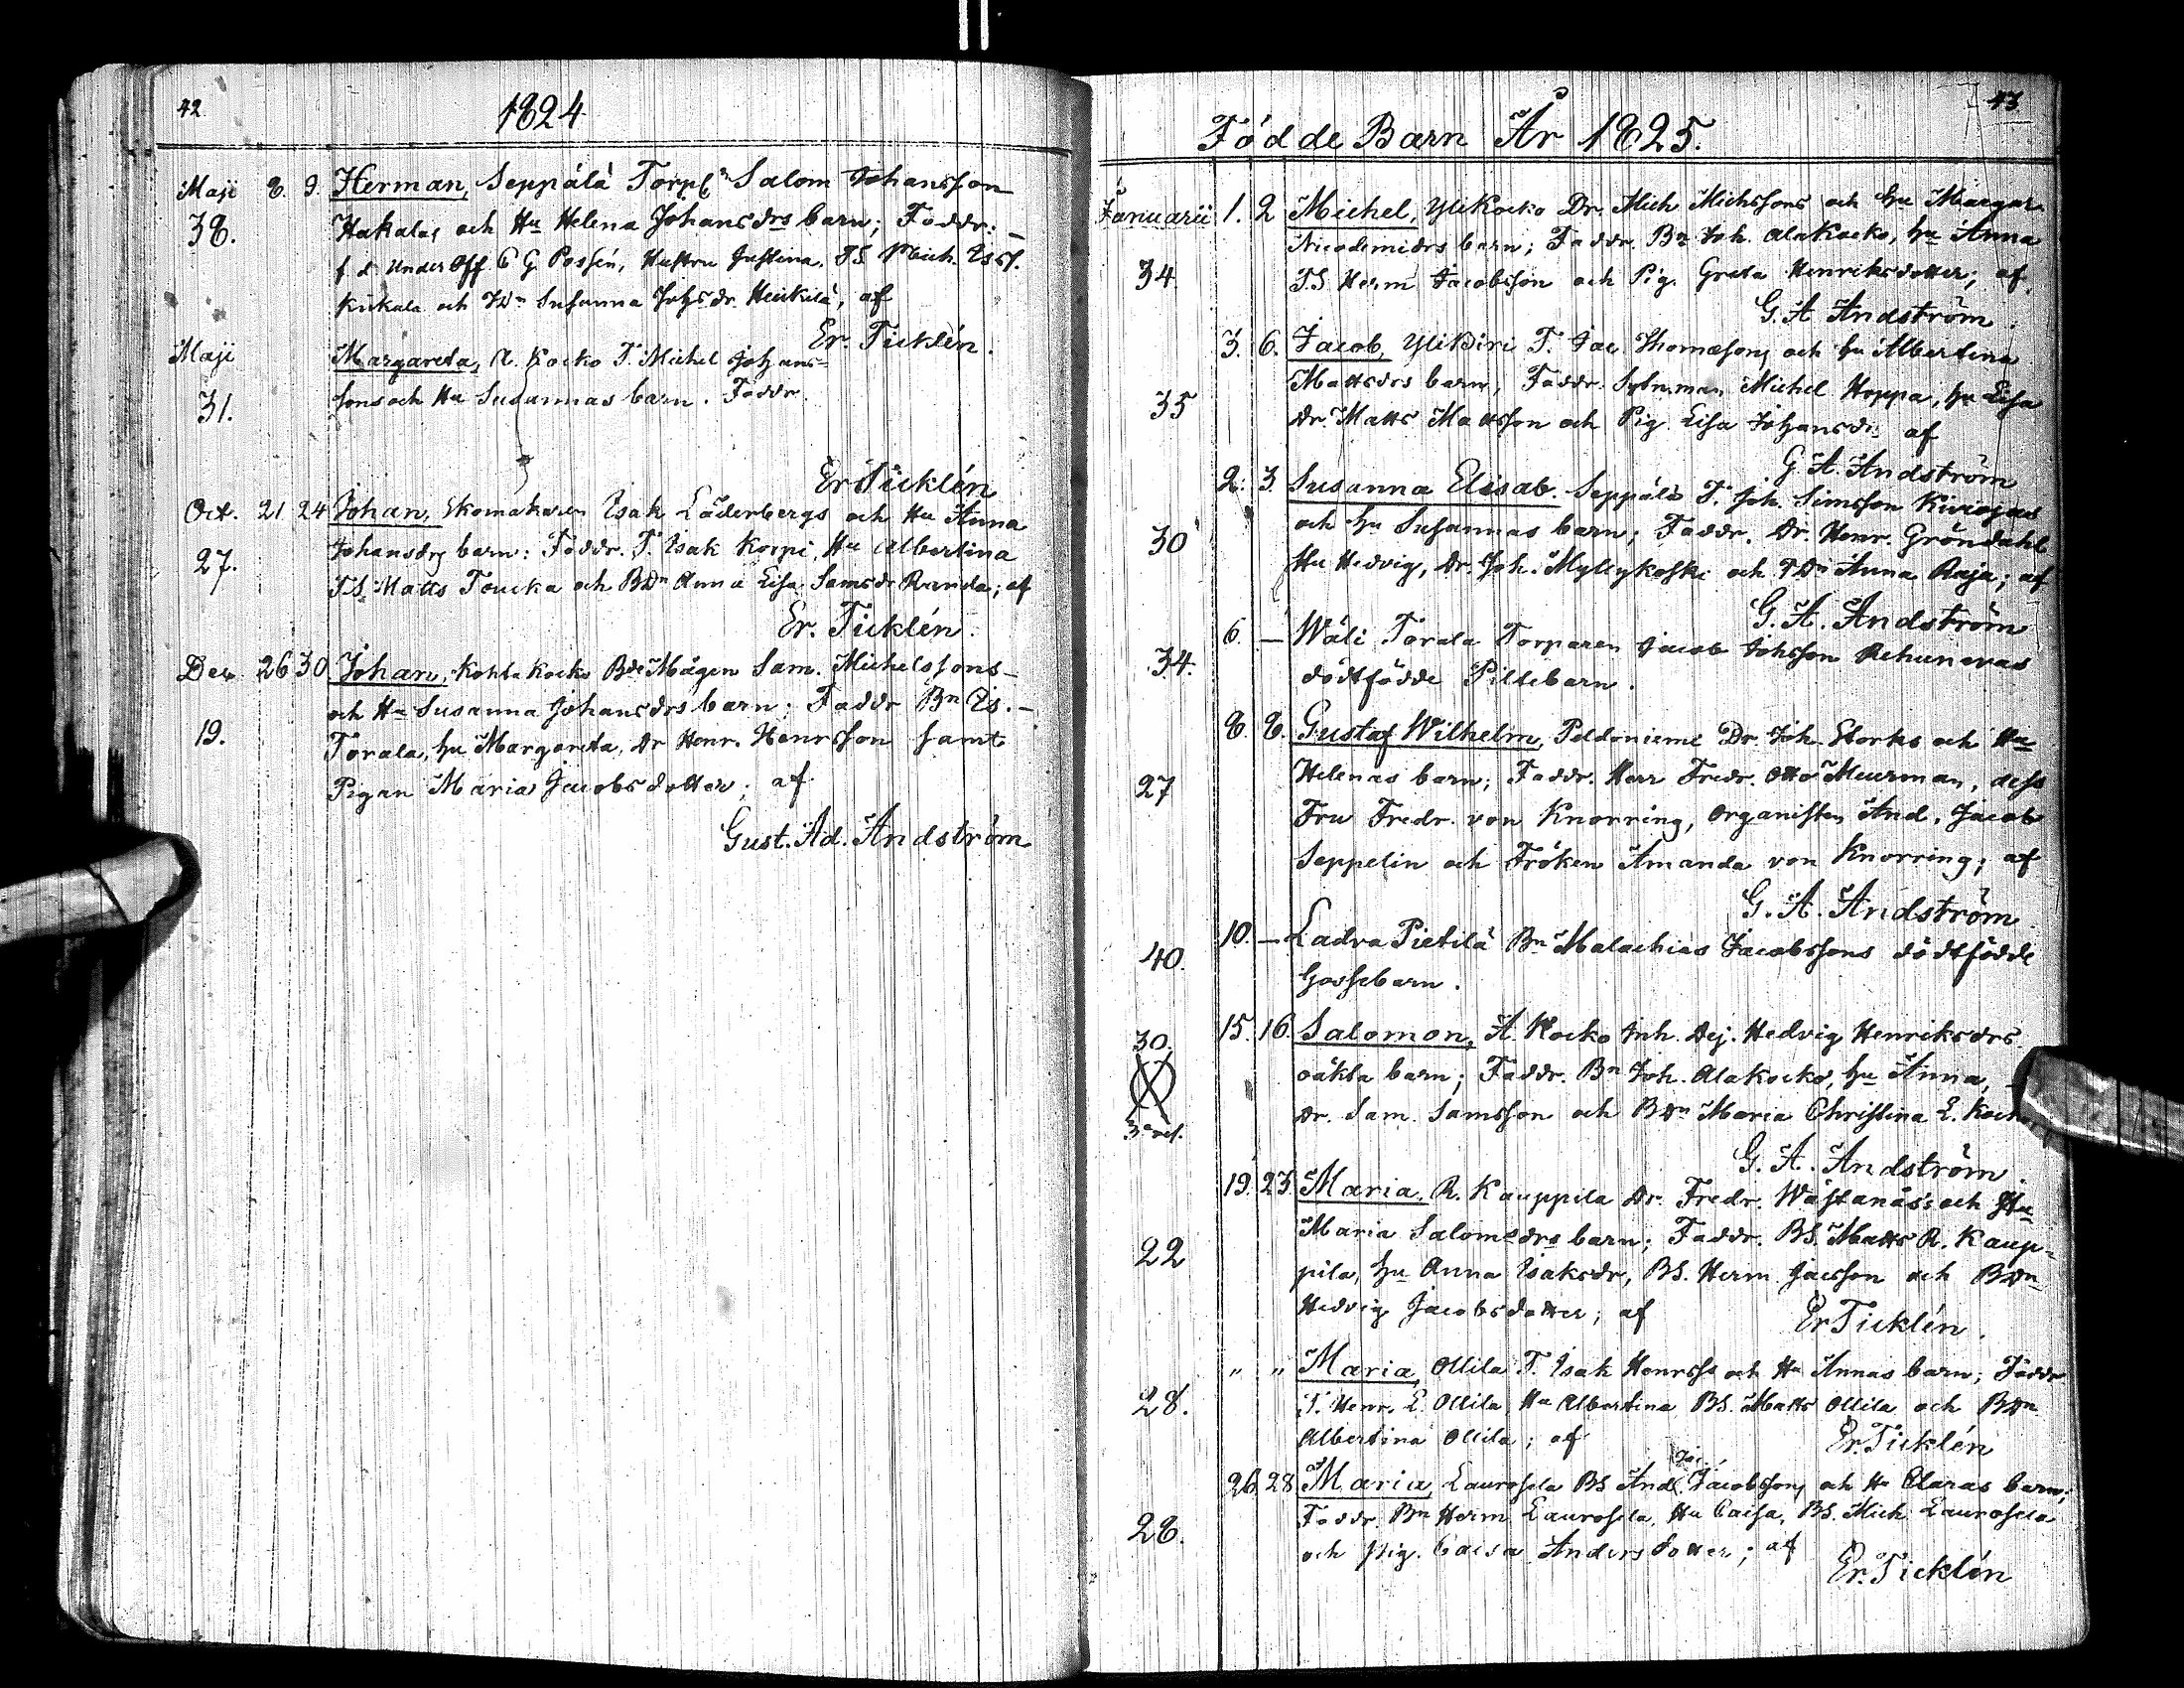 42
1824
Maji 8. 9. Herman, Seppälä Torp. Salom Johansson
38. Hakalas och Hu Helena Johansdrs barn; Faddr:
f d Under Off. C G Possén, Hustru Justina, TS Mich.
Kukala och TDn Susanna Johsdr Heikilä, af
Er. Ticklén.
Maji Margareta, A. Kocko T. Michel Johans=
31. sons och Hu Susannas barn. Faddr.
Er Ticklén
Oct. 21 24 Johan, Skomakaren Isak Söderbergs och Hu Anna
27. Johansdrs barn: Faddr. T. Isak Korpi, Hu Albertina
TS. Matts Toucka och BDn Anna Lisa Samsdr Randa; af
Er. Ticklén.
Dec. 26 30 Johan, Kohta Kocko Bde Mågen Sam. Michelssons
och Hu Susanna Johansdrs barn; Faddr Bn Is.
19. Torala, hu Margareta, Dr Henr. Henrsson samt
Pigan Maria Jacobsdotter; af
Gust. Ad. Andström
43
Födde Barn År 1825.
Januarii 1. 2 Michel, Ylikocko Dr. Mich Michssons och hu Margar.
Nicodemidrs barn; Faddr. Bn Joh. Alakocko, hu Anna
34. T.S Herm Jacobsson och Pig. Greta Henriksdotter; af
G. A Andström.
3. 6. Jacob, Ylikiri T. Jac. Thomæsons och hu Albertina
Mattsdrs barn, Faddr. Michel Hoppa, hu Lisa
35 Dr. Matts Mattsson och Pig. Lisa Johansdr; af
G. A. Andström
2. 3. Susanna Elisab. Seppälä T. Joh. Simsson Kiviojas
30 och hu Susannas barn; Faddr. Dr. Henr. Gröndahl
Hu Hedvig, Dr. Joh. Myllykoski och TDn Anna Raja; af
G. A. Andström
6. — Wäli Torala Torparen Jacob Johsson Rehunevas
34. dödfödde Piltebarn.
8. 8. Gustaf Wilhelm, Peldoniemi Dr. Joh. Storks och Hu
27 Helenas barn; Faddr. Herr Fredr. Otto Meurman, dess
Fru Fredr. von Knorring, Organisten And. Jacob
Seppelin och Fröken Amanda von Knorring; af
G. A. Andström
10. — Ladva Pietilä Bn Malachias Jacobssons dödtfödde
40. Gossebarn.
15. 16. Salomon, A. Kocko Inh. Dej. Hedvig Henriksdrs
30. oäkta barn; Faddr. Bn Joh. Alakocko, hu Anna,
Dr. Sam. Samsson och BDn Maria Christina L. Kocko
G. A. Andström.
19. 23. Maria, R. Kauppila Dr. Fredr. Wästanås's och Hu
22 Maria Salomsdrs barn; Faddr. BS. Matts R. Kaup=
pila, hu Anna Isaksdr, BS. Herm Jacsson och BDn
Hedvig Jacobsdotter; af Er Ticklén.
" " Maria, Ollila T. Isak Henrss och Hu Annas barn; Faddr
28. T. Henr. L. Ollila, Hu Albertina BS. Matts Ollila och BDn
Albertina Ollila; af Er. Ticklén
26. 28 Maria, Laurosela BS And. Jacobssons och Hu Claras barn;
28. Faddr. Bn Herm. Laurosela, Hu Caisa, BS. Mich. Laurosela
och pig. Caisa Andersdotter; af
Er. Ticklén